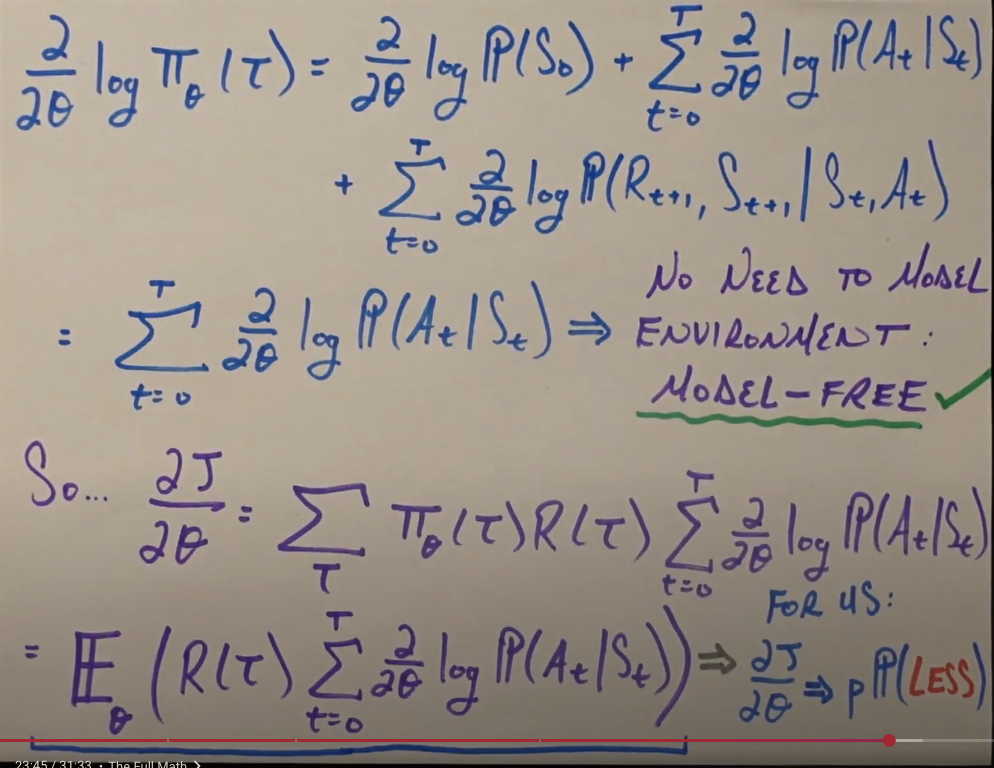 ∂/∂θ log π_θ(τ) = ∂/∂θ log P(S_0) + Σ_{t=0}^{T} ∂/∂θ log P(A_t|S_t)
+ Σ_{t=0}^{T} ∂/∂θ log P(R_{t+1}, S_{t+1}|S_t, A_t)
= Σ_{t=0}^{T} ∂/∂θ log P(A_t|S_t) ⇒ NO NEED TO MODEL
ENVIRONMENT:
MODEL-FREE ✓
So... ∂J/∂θ = Σ_τ π_θ(τ) R(τ) Σ_{t=0}^{T} ∂/∂θ log P(A_t|S_t)
FOR US:
= E_θ (R(τ) Σ_{t=0}^{T} ∂/∂θ log P(A_t|S_t)) ⇒ ∂J/∂θ ⇒ pP(LESS)
23:45 / 31:33 • The Full Math >